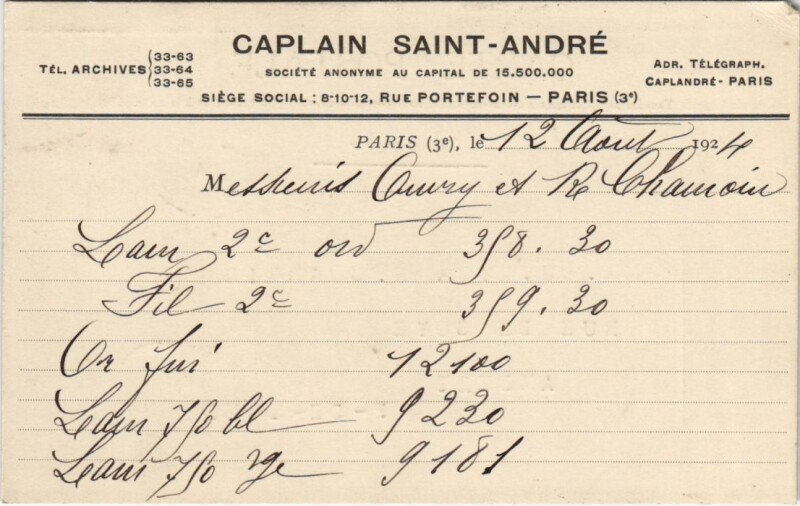 CAPLAIN SAINT-ANDRÉ
TÉL. ARCHIVES
33-63
33-64
33-65
SOCIÉTÉ ANONYME AU CAPITAL DE 15.500.000
ADR. TÉLÉGRAPH.
CAPLANDRÉ - PARIS
SIÈGE SOCIAL : 8-10-12, RUE PORTEFOIN — PARIS (3e)
PARIS (3e), le 12 Août 1924
Messieurs et Chamoin
Lam 2e or 358.30
Fil 2e 359.30
Or fin 12100
Lam 750 bl 9230
Lam 750 rge 9181